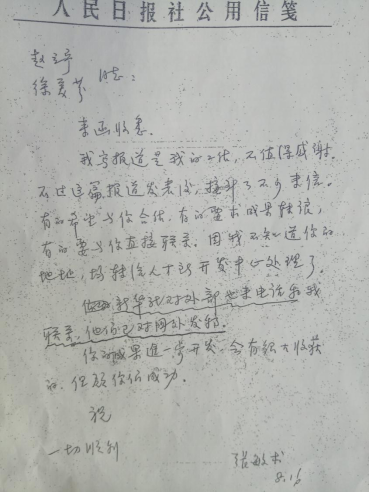 人民日报社公用信笺
赵
徐 同志：
来函收悉。
我写报道是我的工作，不值得感谢。
不过这篇报道发表后，接到了不少来信。
有的希望与你合作，有的要求成果转让，
有的要与你直接联系。因我不知道你的
地址，均转给人才开发中心处理了。
新华社对外部也来电话和我
联系，他们已对国外发稿。
你的成果进一步开发，会有很大收获
的，但愿你们成功。
祝
一切顺利
张
8.16